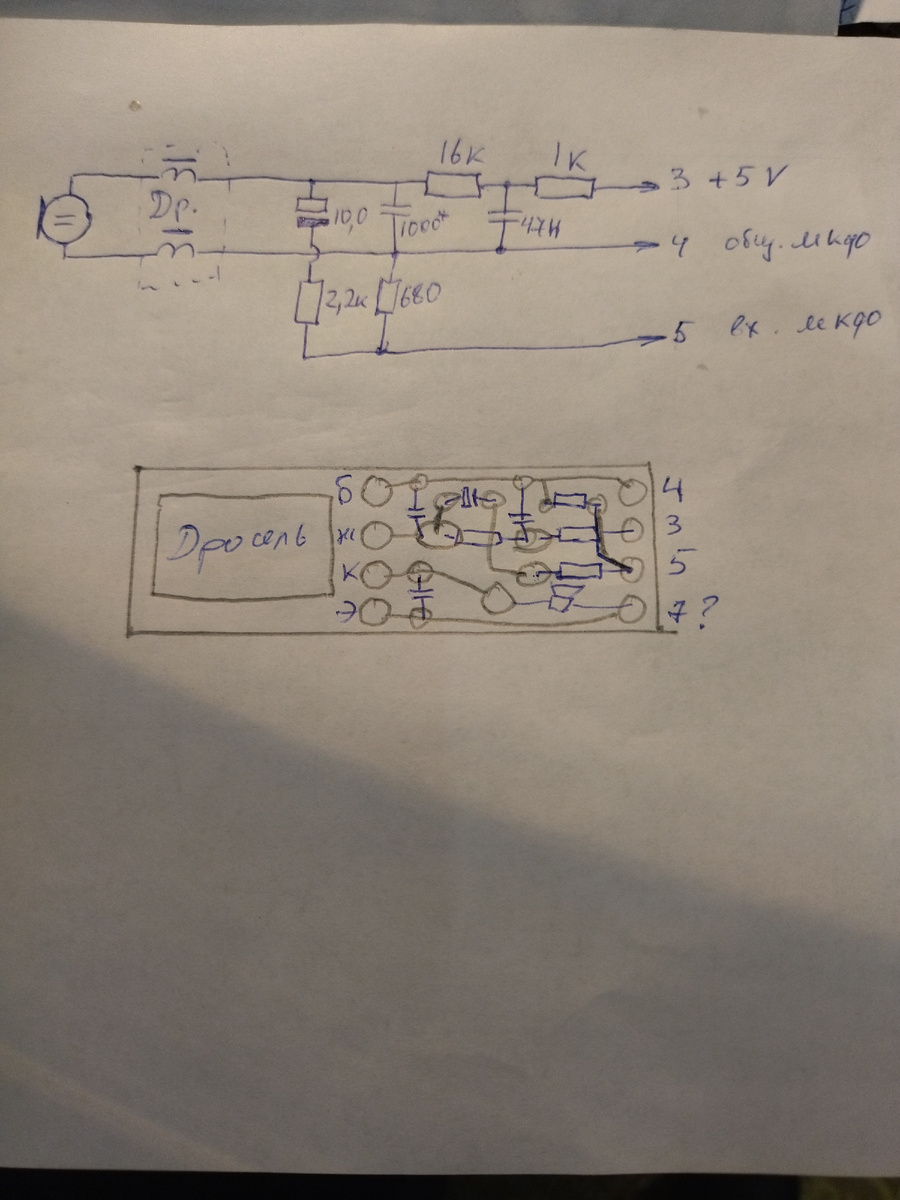 16к 1к
3 +5V
Др. 10,0 1000* 47н
4 общ. мкфо
2,2к 680
5 вх. мкфо
Б 4
Ж 3
Дросель
К 5
Э 7?